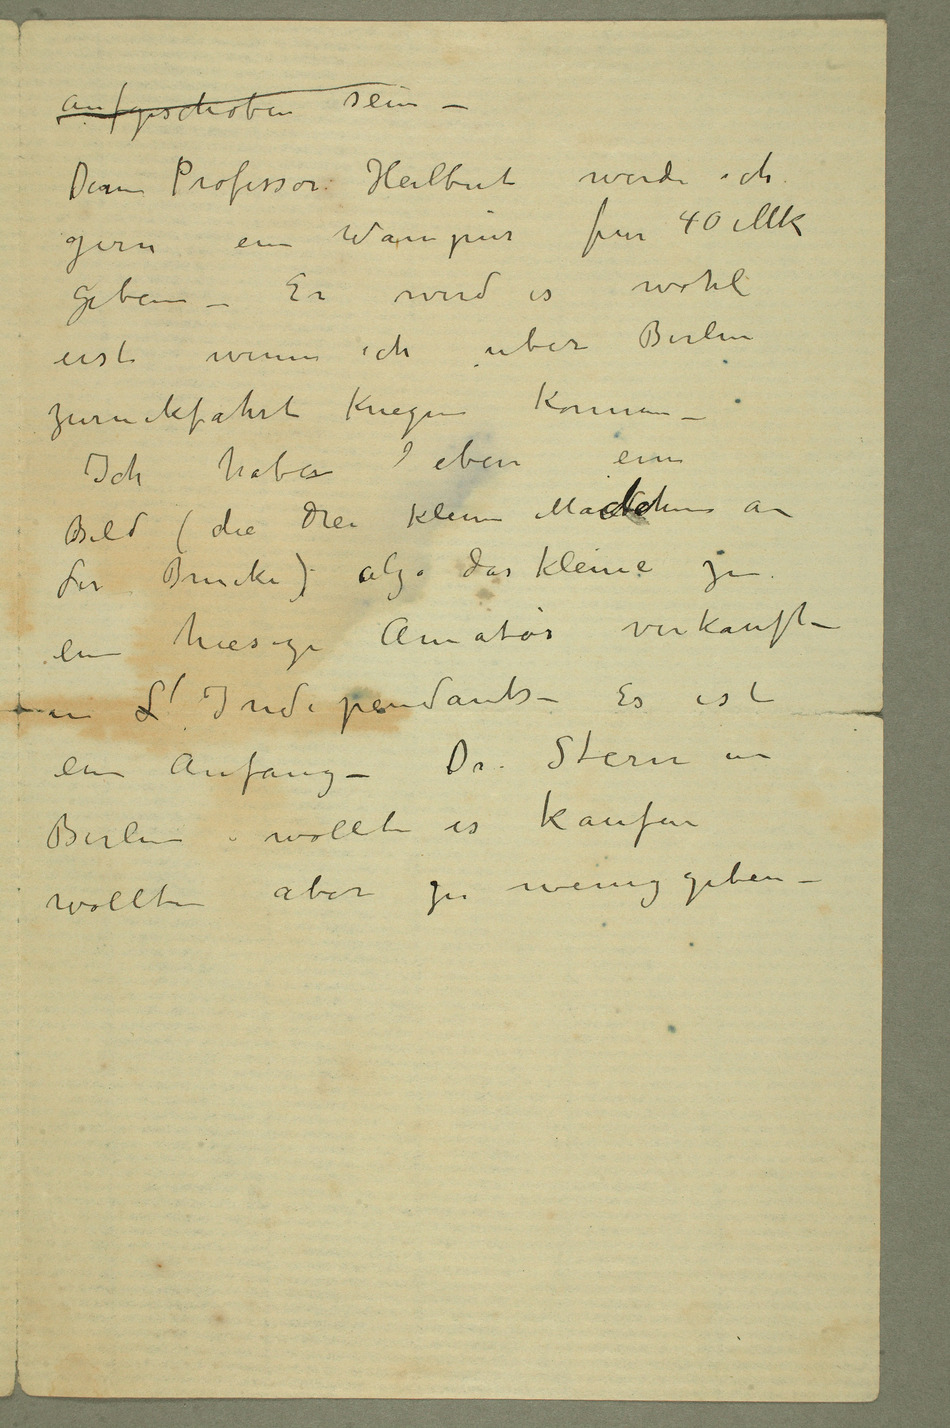 aufgeschoben sein –
Dem Professor Heilbut werde ich
gern ein Wampür fur 40 Mk
geben – Er wird es wohl
erst wenn ich uber Berlin
zuruckfahrt kriegen konnen –
Ich habe eben ein
Bild (die drei kleine Madchen an
der Brucke) also das kleine zu
ein hiesige Amatör verkauft –
in L'Independants – Es ist
ein Anfang – Dr. Stern in
Berlin wollte es kaufen
wollten aber zu wenig geben –